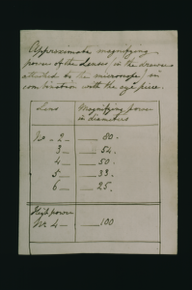 Approximate magnifying
power of the Lenses (in the drawer
attached to the microscope) in
combination with the eye piece.
Lens Magnifying power
in diameters
No - 2 - 80.
3 - 54.
4 - 50.
5 - 33.
6 - 25.
High power
No 4 - 100